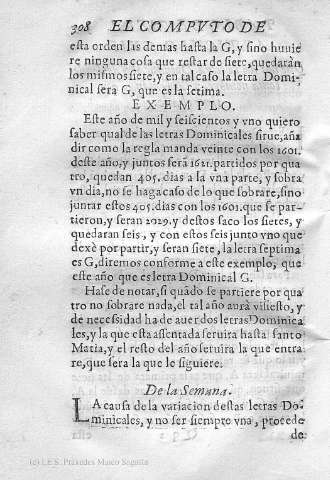 308 EL COMPVTO DE
esta orden las demas hasta la G, y sino huuie
re ninguna cosa que restar de siete, quedaràn
los mismos siete, y en tal caso la letra Domi-
nical serà G, que es la setima.
EXEMPLO.
Este año de mil y seiscientos y vno quiero
saber qual de las letras Dominicales sirue, aña
dir como la regla manda veinte con los 1601.
deste año, y juntos serã 1621. partidos por qua
tro, quedan 405. dias a la vna parte, y sobra
vn dia, no se haga caso de lo que sobrare, sino
juntar estos 405. dias con los 1601. que se par-
tieron, y seran 2029. y destos saco los sietes, y
quedaràn seis, y con estos seis junto vno que
dexè por partir, y seran siete, la letra septima
es G, diremos conforme a este exemplo, que
este año que es letra Dominical G.
Hase de notar, si quãdo se partiere por qua
tro no sobrare nada, el tal año aurà visiesto, y
de necesidad ha de auer dos letras Dominica
les, y la que esta assentada seruira hasta santo
Matia, y el resto del año seruira la que entra
re, que sera la que le siguiere.
De la Semana.
LA causa de la variacion destas letras Do-
minicales, y no ser siempre vna, procede
de:
(c) I.E.S. Práxedes Mateo Sagasta